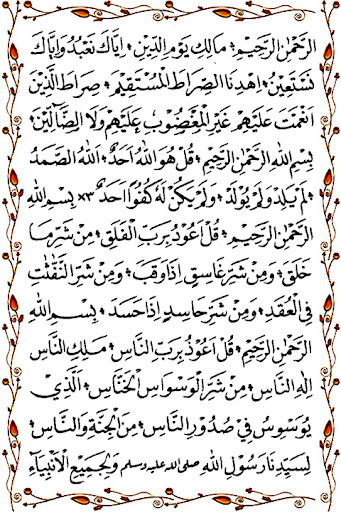 الرَّحْمٰنِ الرَّحِيْمِ۞ مَالِكِ يَوْمِ الدِّيْنِ۞ اِيَّاكَ نَعْبُدُ وَاِيَّاكَ
نَسْتَعِيْنُ۞ اِهْدِنَا الصِّرَاطَ الْمُسْتَقِيْمَ۞ صِرَاطَ الَّذِيْنَ
اَنْعَمْتَ عَلَيْهِمْ غَيْرِ الْمَغْضُوْبِ عَلَيْهِمْ وَلَا الضَّآلِّيْنَ۞
بِسْمِ اللهِ الرَّحْمٰنِ الرَّحِيْمِ۞ قُلْ هُوَ اللهُ اَحَدٌ۞ اَللهُ الصَّمَدُ
۞لَمْ يَلِدْ وَلَمْ يُوْلَدْ۞ وَلَمْ يَكُنْ لَهُ كُفُوًا اَحَدٌ ×٣ بِسْمِ اللهِ
الرَّحْمٰنِ الرَّحِيْمِ۞ قُلْ اَعُوْذُ بِرَبِّ الْفَلَقِ۞ مِنْ شَرِّ مَا
خَلَقَ۞ وَمِنْ شَرِّ غَاسِقٍ اِذَا وَقَبَ۞ وَمِنْ شَرِّ النَّفّٰثٰتِ
فِى الْعُقَدِ۞ وَمِنْ شَرِّ حَاسِدٍ اِذَا حَسَدَ۞ بِسْمِ اللهِ
الرَّحْمٰنِ الرَّحِيْمِ۞ قُلْ اَعُوْذُ بِرَبِّ النَّاسِ۞ مَلِكِ النَّاسِ
اِلٰهِ النَّاسِ۞ مِنْ شَرِّ الْوَسْوَاسِ الْخَنَّاسِ۞ اَلَّذِيْ
يُوَسْوِسُ فِيْ صُدُوْرِ النَّاسِ۞ مِنَ الْجِنَّةِ وَالنَّاسِ۞
لِسَيِّدِنَا رَسُوْلِ اللهِ صلى الله عليه وسلم وَلِجَمِيْعِ الْاَنْبِيَآءِ